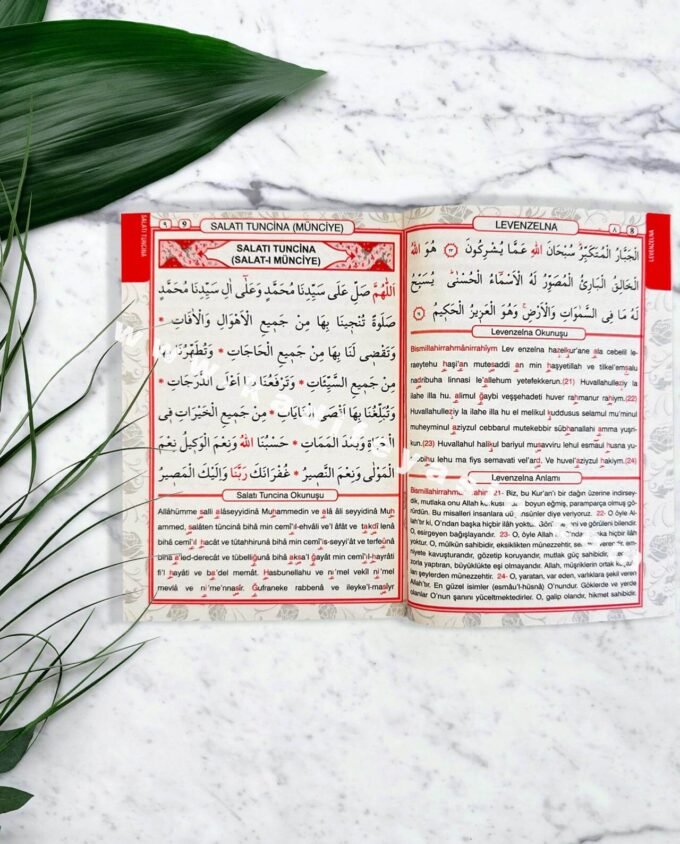 LEVENZELNA
٨ 8
LEVENZELNA
الْجَبَّارُ الْمُتَكَبِّرُ سُبْحَانَ اللهِ عَمَّا يُشْرِكُونَ ﴿٢٣﴾ هُوَ اللهُ
الْخَالِقُ الْبَارِئُ الْمُصَوِّرُ لَهُ الْاَسْمَاءُ الْحُسْنٰى يُسَبِّحُ
لَهُ مَا فِى السَّمٰوَاتِ وَالْاَرْضِ وَهُوَ الْعَزِيزُ الْحَكِيمُ
Levenzelna Okunuşu
Bismillahirrahmânirrahîym Lev enzelna hazelkur'ane ala cebelil le-
raeytehu haşi'an mutesaddi an min haşyetillah ve tilkel'emsalu
nadribuha linnasi le'allehum yetefekkerun.(21) Huvallahulleziy la
ilahe illa hu. alimul ğaybi veşşehadeti huver rahmanur rahiym.(22)
Huvallahulleziy la ilahe illa hu el melikul kuddusus selamul mu'minul
muheyminul aziyzul cebbarul mutekebbir sübhanallahi amma yuşri-
kun.(23) Huvallahul halikul bariyul musavviru lehul esmaül husna yu-
sebbihu lehu ma fiys semavati vel'ard. Ve huvel'aziyzul hakiym.(24)
Levenzelna Anlamı
Bismillahirrahmânirrahîm 21- Biz, bu Kur'an'ı bir dağın üzerine indirsey-
dik, mutlaka onu Allah korkusundan boyun eğmiş, parampARÇA olmuş gö-
rürdün. Bu misalleri insanlara düşünsünler diye veriyoruz. 22- O öyle Al-
lah'tır ki, O'ndan başka hiçbir ilâh yoktur. Görünmeyeni ve görüleni bilendir.
O, esirgeyen bağışlayandır. 23- O, öyle Allah O'ndan başka hiçbir ilâh
yoktur. O, mülkün sahibidir, eksiklikten münezzehtir, selâmet verendir, em-
niyete kavuşturandır, gözetip koruyandır, mutlak güç sahibidir, istediğini
zorla yaptıran, büyüklükte eşi olmayandır. Allah, müşriklerin ortak koştuk-
ları şeylerden münezzehtir. 24- O, yaratan, var eden, varlıklara şekil veren
Allah'tır. En güzel isimler (esmâu'l-hüsnâ) O'nundur. Göklerde ve yerde
olanlar O'nun şanını yüceltmektedirler. O, galip olandır, hikmet sahibidir.
SALATI TUNCİNA
٩ 9
SALATI TUNCİNA (MÜNCİYE)
SALATI TUNCİNA
(SALAT-I MÜNCİYE)
اَللّٰهُمَّ صَلِّ عَلٰى سَيِّدِنَا مُحَمَّدٍ وَعَلٰى اٰلِ سَيِّدِنَا مُحَمَّدٍ
صَلٰوةً تُنْجِينَا بِهَا مِنْ جَمِيعِ الْاَهْوَالِ وَالْاٰفَاتِ *
وَتَقْضِى لَنَا بِهَا مِنْ جَمِيعِ الْحَاجَاتِ * وَتُطَهِّرُنَا بِهَا
مِنْ جَمِيعِ السَّيِّئَاتِ * وَتَرْفَعُنَا بِهَا اَعْلَى الدَّرَجَاتِ *
وَتُبَلِّغُنَا بِهَا اَقْصَى الْغَايَاتِ * مِنْ جَمِيعِ الْخَيْرَاتِ فِى
الْحَيَاةِ وَبَعْدَ الْمَمَاتِ * حَسْبُنَا اللهُ وَنِعْمَ الْوَكِيلُ نِعْمَ
الْمَوْلٰى وَنِعْمَ النَّصِيرُ * غُفْرَانَكَ رَبَّنَا وَاِلَيْكَ الْمَصِيرُ
Salatı Tuncina Okunuşu
Allâhümme salli alâseyyidinâ Muhammedin ve alâ âli seyyidinâ Muh
ammed, salâten tüncînâ bihâ min cemî'il-ehvâli ve'l âfât ve takdî lenâ
bihâ cemî'il hacât ve tütahhirunâ bihâ min cemî'is-seyyi'ât ve terfeünâ
bihâ a'led-derecât ve tübelliğunâ bihâ aksa'l ğayât min cemî'il-hayrâti
fi'l hayâti ve ba'del memât. Hasbunellahu ve ni'mel vekîl ni'mel
mevlâ ve ni'me'nnasîr. Ğufraneke rabbenâ ve ileyke'l-masîyr